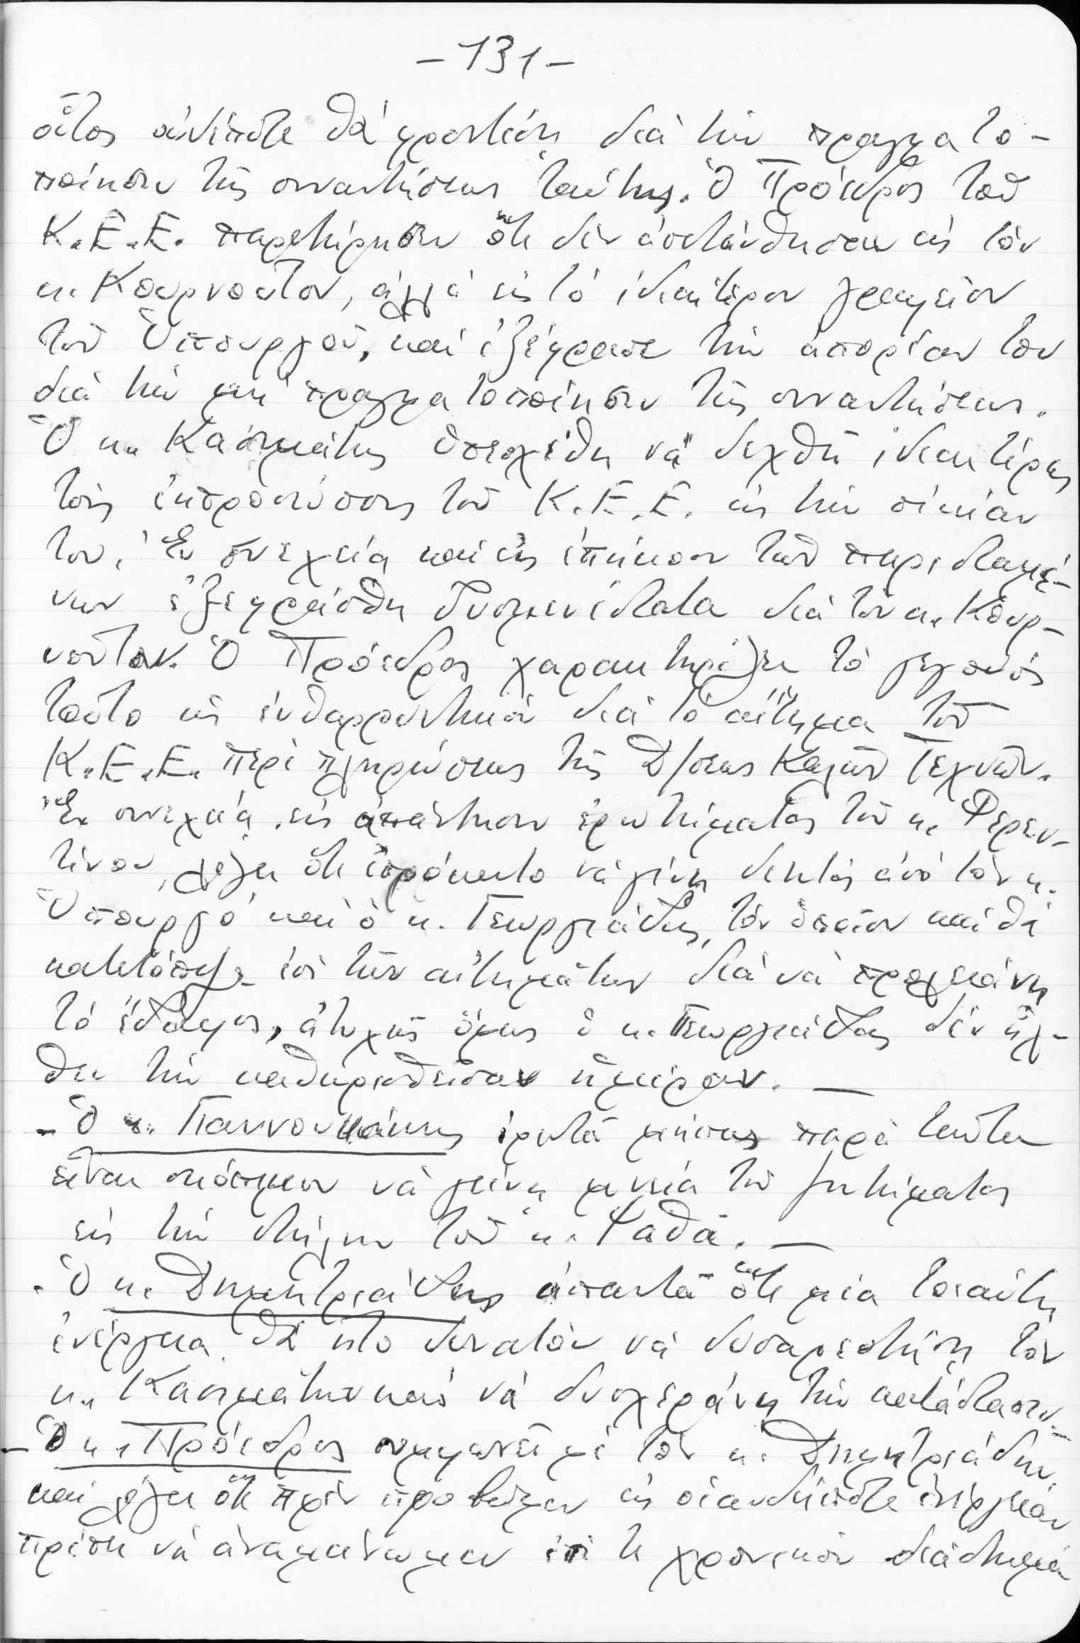 - 131 -
οὗτος οὐδέποτε θά φροντίση διά τήν πραγματο-
ποίησιν τῆς συναντήσεως ταύτης. Ὁ Πρόεδρος τοῦ
Κ.Ε.Ε. παρετήρησεν ὅτι δέν ἀπετάνθησαν εἰς τόν
κ. Κουρνοῦτον, ἀλλά εἰς τό ἰδιαίτερον γραφεῖον
τοῦ Ὑπουργοῦ, καί ἐξέφρασε τήν ἀπορίαν του
διά τήν μή πραγματοποίησιν τῆς συναντήσεως.
Ὁ κ. Κασιμάτης ὑπεσχέθη νά δεχθῆ ἰδιαιτέρως
τούς ἐκπροσώπους τοῦ Κ.Ε.Ε. εἰς τήν οἰκίαν
του. Ἐν συνεχεία καί εἰς ἐπήκοον τῶν παρισταμέ-
νων ἐξεφράσθη δυσμενέστατα διά τόν κ. Κουρ-
νοῦτον. Ὁ Πρόεδρος χαρακτηρίζει τό γεγονός
τοῦτο ὡς ἐνθαρρυντικόν διά τό αἴτημα τοῦ
Κ.Ε.Ε. περί πληρώσεως τῆς Δ/σεως Καλῶν Τεχνῶν.
Ἐν συνεχεία, εἰς ἀπάντησιν ἐρωτήματος τοῦ κ. Φερεν-
τίνου, λέγει ὅτι ἐπρόκειτο νά γίνη δεκτός ἀπό τόν κ.
Ὑπουργό καί ὁ κ. Γεωργιάδης, τόν ὁποῖον καί θά
ἐπί τῶν αἰτημάτων διά νά προλειάνη
τό ἔδαφος, ἀτυχῶς ὅμως ὁ κ. Γεωργιάδης δέν ἦλ-
θε τήν καθορισθεῖσαν ἡμέραν. —
- Ὁ κ. Γιαννουκάκης ἐρωτᾶ μήπως παρά ταῦτα
εἶναι σκόπιμον νά γίνη μνεία τοῦ ζητήματος
εἰς τήν στήλην τοῦ κ. Ψαθᾶ. —
- Ὁ κ. Δημητριάδης ἀπαντᾶ ὅτι μία τοιαύτη
ἐνέργεια θά ἦτο δυνατόν νά δυσαρεστήση τόν
κ. Κασιμάτην καί νά δυσχεράνη τήν κατάστασιν.-
- Ὁ κ. Πρόεδρος συμφωνεῖ μέ τόν κ. Δημητριάδην
καί λέγει ὅτι πρίν προβῶμεν εἰς οἱανδήποτε ἐνέργειαν
πρέπει νά ἀναμείνωμεν ἐπί τι χρονικόν διάστημα